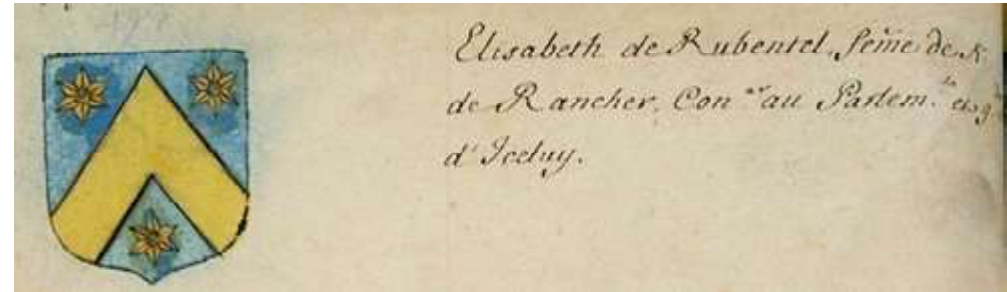 Elisabeth de Rubentel, feme de
de Rancher, Con.er au Parlem.
d'Iceluy.